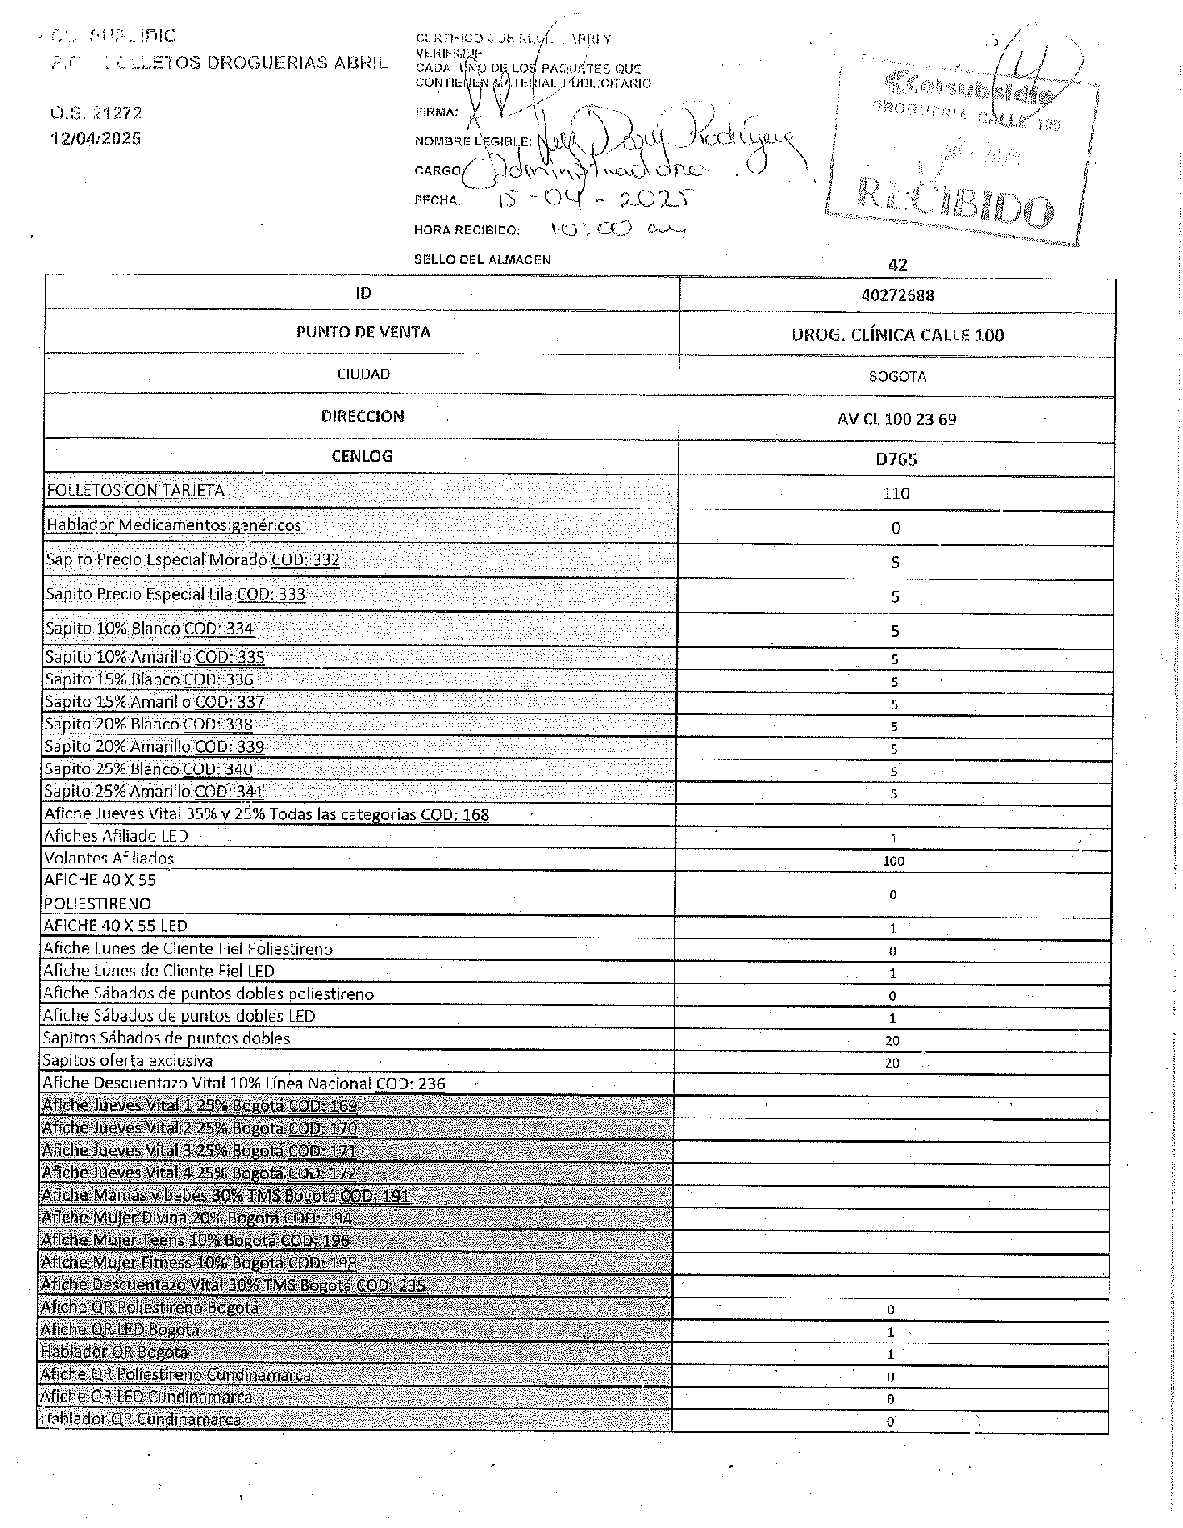 FOLLETOS DROGUERIAS ABRIL
O.S. 21272
12/04/2025
CERTIFICO QUE
VERIFIQUE
CADA UNO DE LOS PAQUETES QUE
CONTIENEN MATERIAL PUBLICITARIO
FIRMA:
NOMBRE LEGIBLE: Rodríguez
CARGO Administradora
FECHA. 15-04-2025
HORA RECIBIDO: 10:00 am
SELLO DEL ALMACEN
Colsubsidio
DROGUERIA CALLE 100
RECIBIDO
42
ID 40272688
PUNTO DE VENTA DROG. CLÍNICA CALLE 100
CIUDAD BOGOTA
DIRECCION AV CL 100 23 69
CENLOG D765
FOLLETOS CON TARJETA 110
Hablador Medicamentos genéricos 0
Sapito Precio Especial Morado COD: 332 5
Sapito Precio Especial Lila COD: 333 5
Sapito 10% Blanco COD: 334 5
Sapito 10% Amarillo COD: 335 5
Sapito 15% Blanco COD: 336 5
Sapito 15% Amarillo COD: 337 5
Sapito 20% Blanco COD: 338 5
Sapito 20% Amarillo COD: 339 5
Sapito 25% Blanco COD: 340 5
Sapito 25% Amarillo COD: 341 5
Afiche Jueves Vital 35% y 25% Todas las categorias COD: 168
Afiches Afiliado LED 1
Volantes Afiliados 100
AFICHE 40 X 55
POLIESTIRENO 0
AFICHE 40 X 55 LED 1
Afiche Lunes de Cliente Fiel Poliestireno 0
Afiche Lunes de Cliente Fiel LED 1
Afiche Sábados de puntos dobles poliestireno 0
Afiche Sábados de puntos dobles LED 1
Sapitos Sábados de puntos dobles 20
Sapitos oferta exclusiva 20
Afiche Descuentazo Vital 10% Línea Nacional COD: 236
Afiche Jueves Vital 1 25% Bogotá COD: 169
Afiche Jueves Vital 2 25% Bogotá COD: 170
Afiche Jueves Vital 3 25% Bogotá COD: 171
Afiche Jueves Vital 4 25% Bogotá COD: 172
Afiche Mamas y bebés 30% TMS Bogotá COD: 191
Afiche Mujer Divina 20% Bogotá COD: 194
Afiche Mujer Teens 10% Bogotá COD: 196
Afiche Mujer Fitness 10% Bogotá COD: 198
Afiche Descuentazo Vital 30% TMS Bogotá COD: 235
Afiche QR Poliestireno Bogota 0
Afiche QR LED Bogota 1
Hablador QR Bogota 1
Afiche QR Poliestireno Cundinamarca 0
Afiche QR LED Cundinamarca 0
Hablador QR Cundinamarca 0